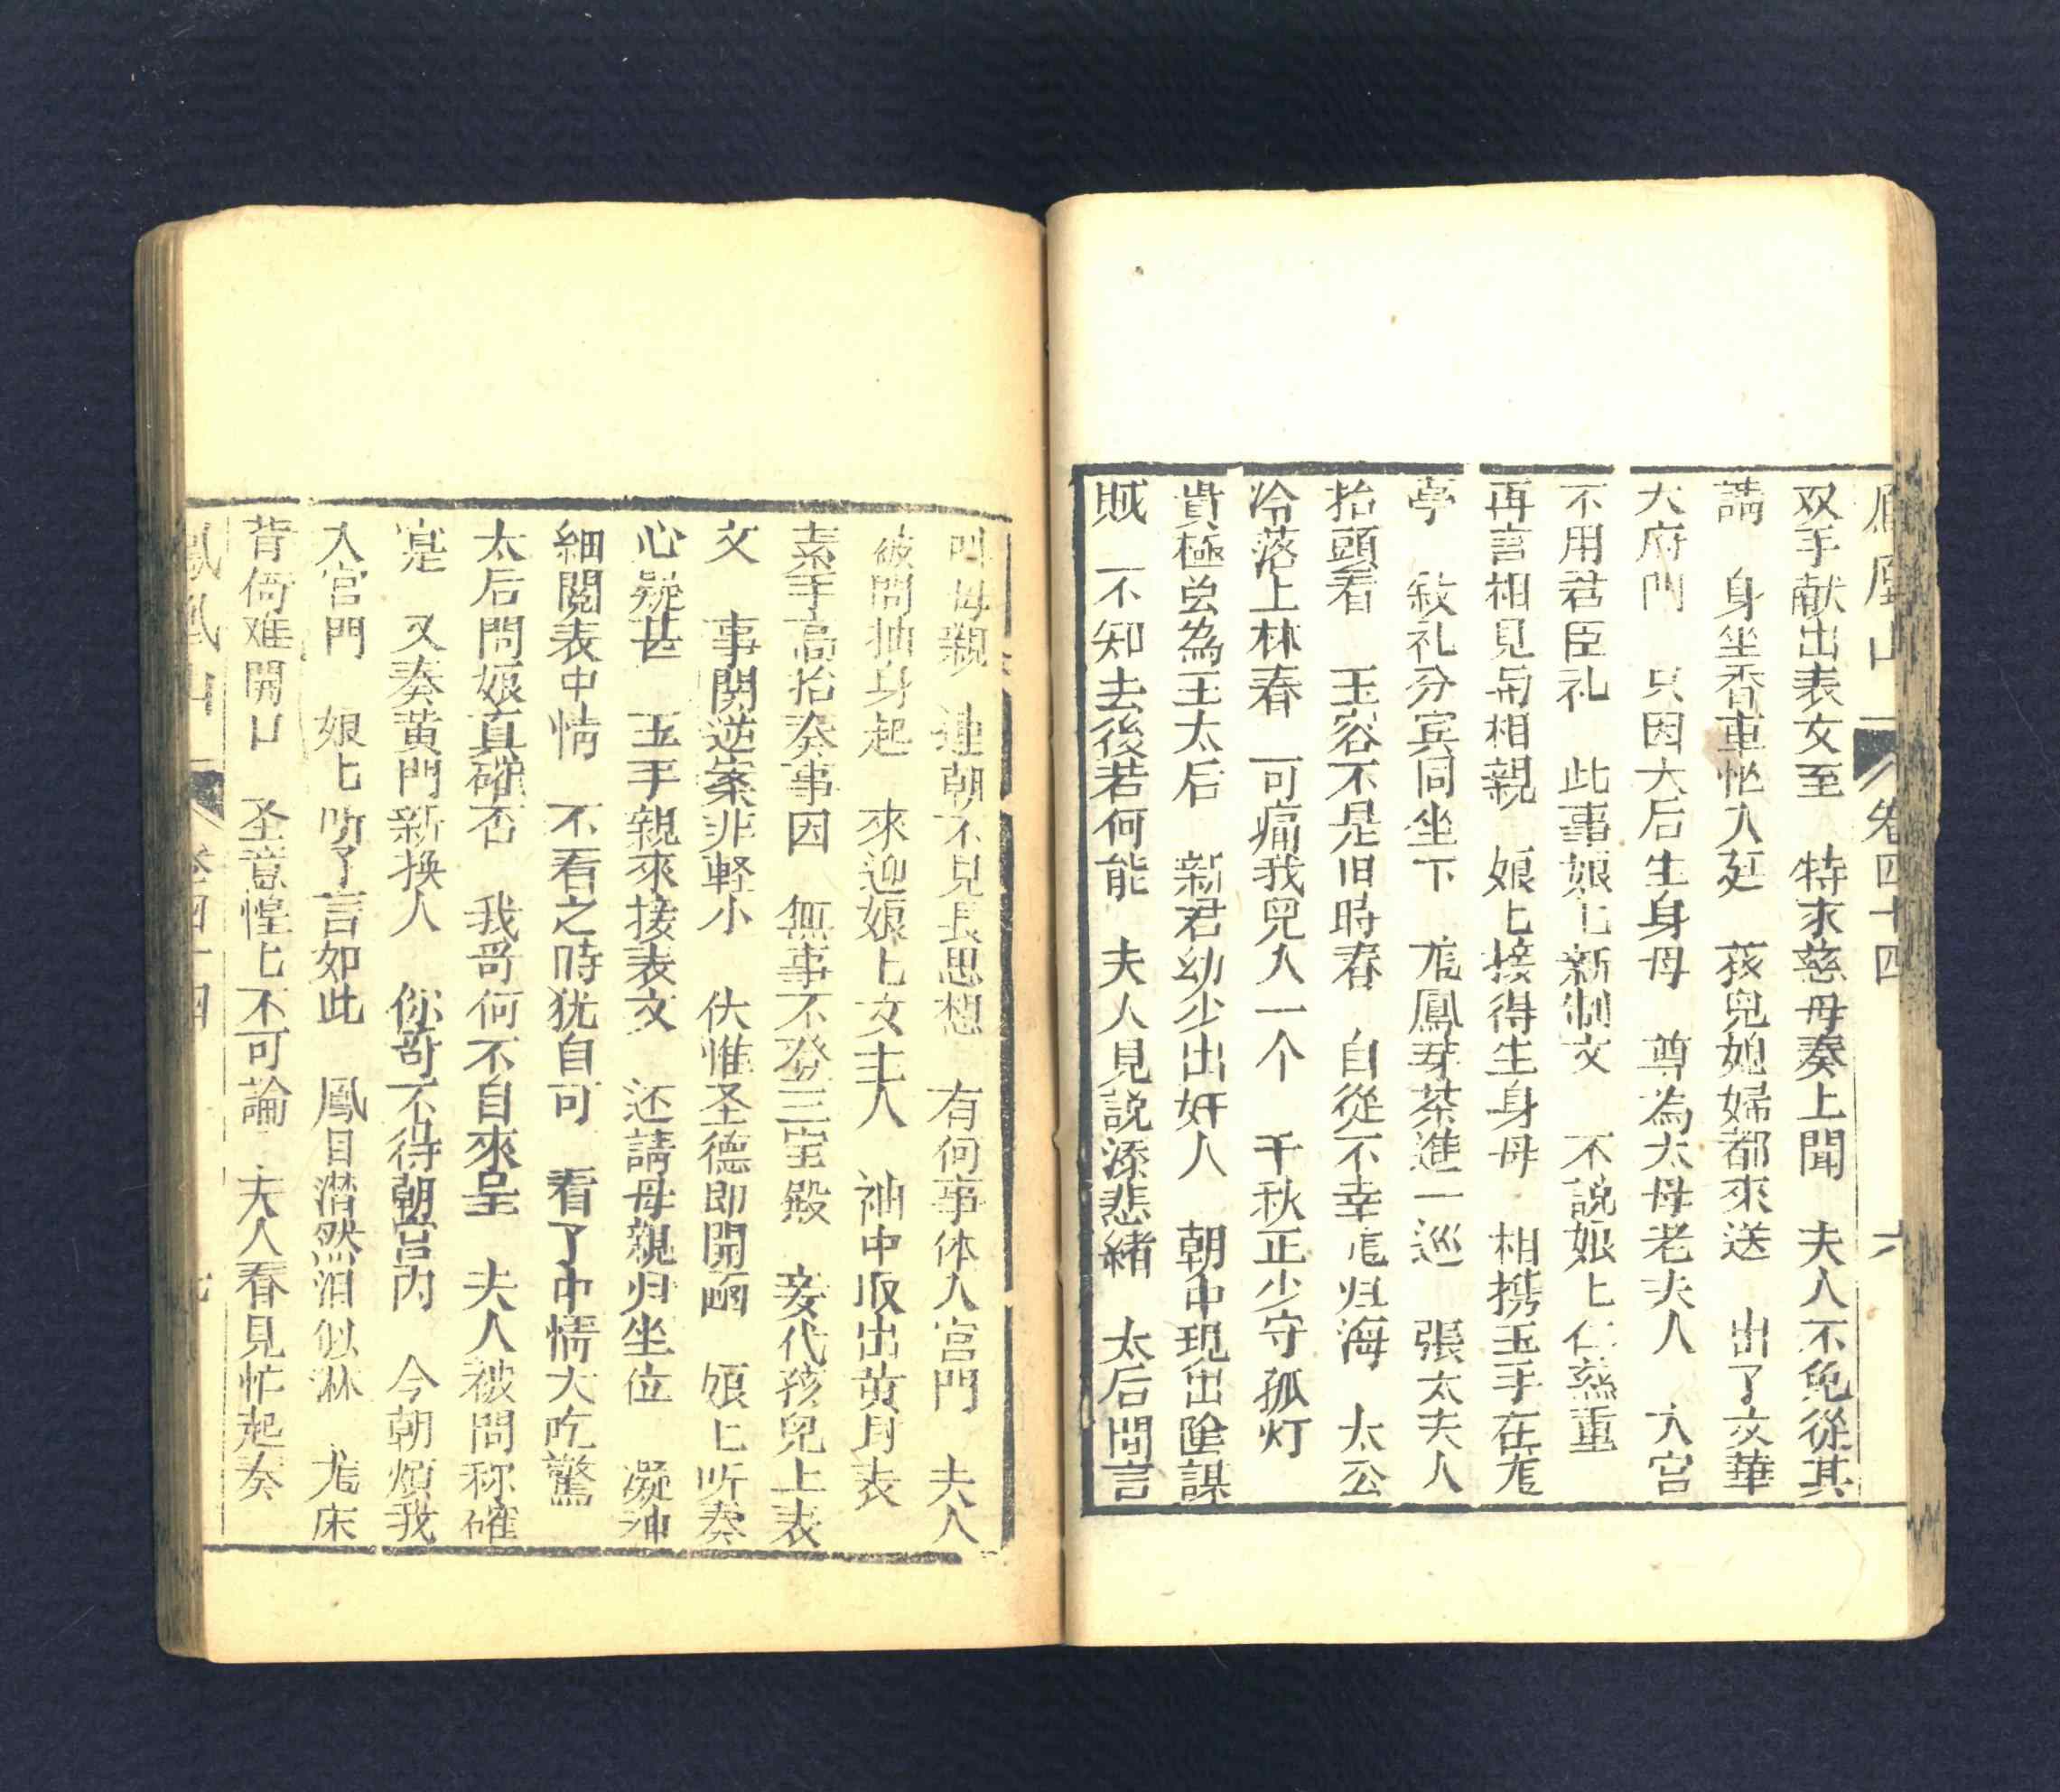 鳳凰山 卷四十四 六
双手献出表女至 特求慈母奏上聞 夫人不免從其
請 身坐香車忙入廷 孩兒媳婦都來送 出了文華
大府門 只因太后生身母 尊為太母老夫人 入宮
不用君臣礼 此事娘匕新制文 不說娘匕仁慈重
再言相見局相親 娘匕接得生身母 相携玉手在尨
亭 敘礼分賓同坐下 尨鳳芽茶進一巡 張太夫人
抬頭看 玉容不是旧時春 自從不幸尨归海 太公
冷落上林春 可痛我兒人一个 千秋正少守孤灯
貴極虽為王太后 新君幼少出奸人 朝中現出陰謀
賊 不知去後若何能 夫人見説添悲緒 太后問言
叫母親 連朝不見長思想 有何事体入宮門 夫人
被問抽身起 來迎娘匕女主人 袖中取出黄月表
素手高抬奏事因 無事不登三宝殿 妾代孩兒上表
文 事関逆案非軽小 伏惟圣德即開函 娘匕听奏
心疑甚 玉手親來接表文 还請母親归坐位 凝神
細閲表中情 不看之時犹自可 看了中情大吃驚
太后問娘真確否 我哥何不自來呈 夫人被問称確
寔 又奏黄門新换人 你哥不得朝宫内 今朝煩我
入宮門 娘匕听了言如此 鳳目潜然泪似淋 尨床
背倚难開口 圣意惶匕不可論 夫人看見忙起奏
鳳凰山 卷四十四 七